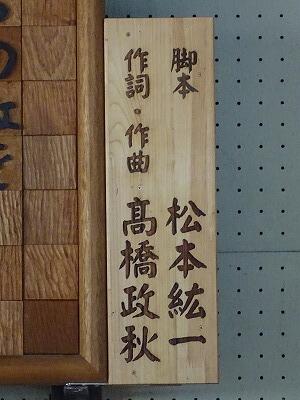 脚本 松本紘一
作詞・作曲 髙橋政秋